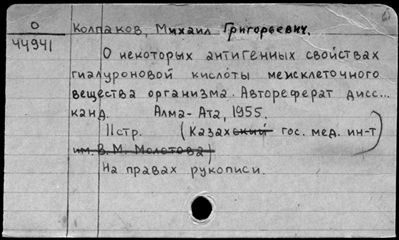 О
44941
Колпаков, Михаил Григорьевич.
О некоторых антигенных свойствах
гиалуроновой кислоты межклеточного
вещества организма. Автореферат дисс...
канд. Алма-Ата, 1955.
11стр. (Казахский гос. мед. ин-т
им. В. М. Молотова)
На правах рукописи.